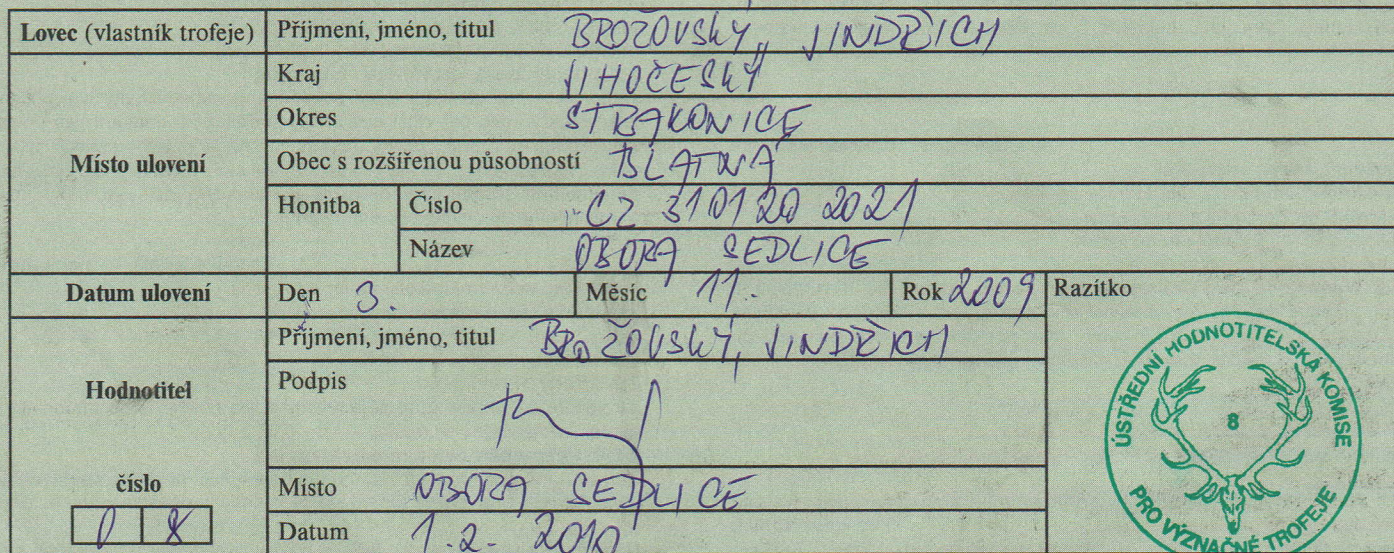 Lovec (vlastník trofeje) Příjmení, jméno, titul BROŽOVSKÝ, JINDŘICH
Kraj JIHOČESKÝ
Okres STRAKONICE
Místo ulovení Obec s rozšířenou působností BLATNÁ
Honitba Číslo CZ 310120 2021
Název OBORA SEDLICE
Datum ulovení Den 3. Měsíc 11. Rok 2009 Razítko
Příjmení, jméno, titul BROŽOVSKÝ, JINDŘICH
Hodnotitel Podpis
číslo
0 8
Místo OBORA SEDLICE
Datum 1.2. 2010
ÚSTŘEDNÍ HODNOTITELSKÁ KOMISE
8
PRO VÝZNAČNÉ TROFEJE